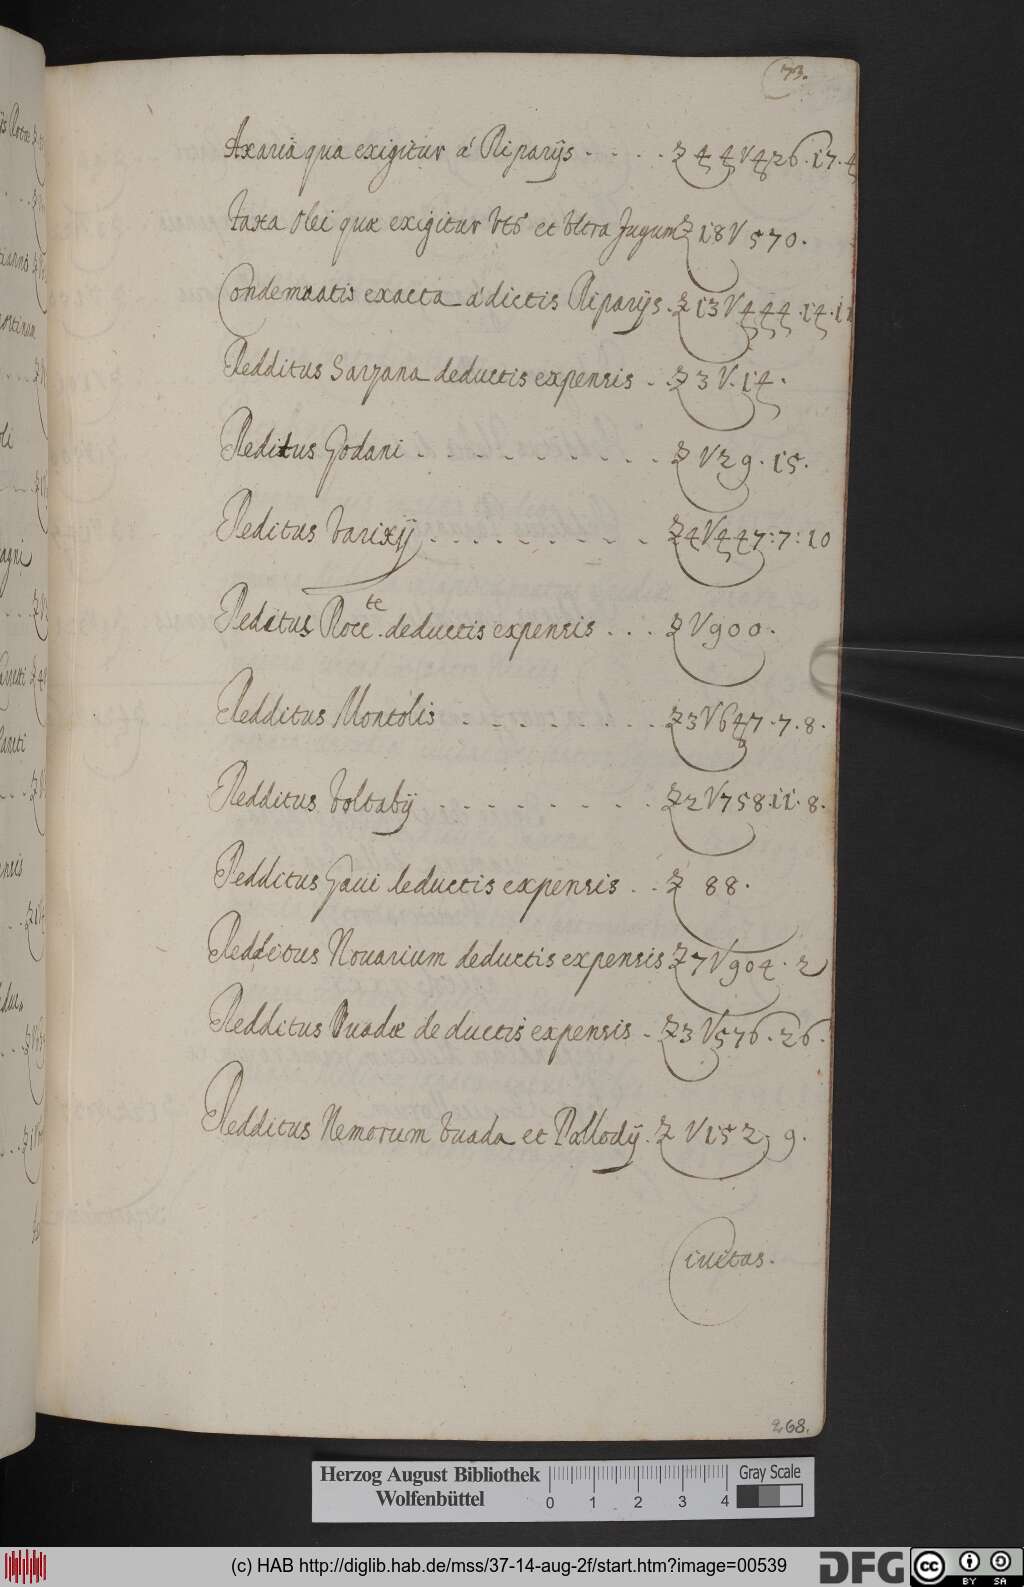 73.
Axaria qua exigitur a' Riparijs . . . . . Ƶ 44 V 426 . 17 . 4
taxa Olei quæ exigitur vts et vltra Jugum Ƶ 18 V 570 .
Condemnatis exacta a' dictis Riparijs . Ƶ 13 V 444 . 14 . 11
Redditus Sarzana deductis expensis . . Ƶ 3 V . 14 .
Reditus Godani . . . . . . . . . . Ƶ V 29 . 15 .
Reditus varixij . . . . . . . . . Ƶ 4 V 447 : 7 : 10
Reditus Rocc.te deductis expensis . . . Ƶ V 900 .
Redditus Montolis . . . . . . . . Ƶ 3 V 647 . 7 . 8 .
Redditus voltabij . . . . . . . . . Ƶ 2 V 758 . 11 . 8 .
Redditus Gaui deductis expensis . . . Ƶ 88 .
Redditus Nouarium deductis expensis Ƶ 7 V 904 . 2
Redditus Vuadæ deductis expensis . Ƶ 3 V 576 . 26 .
Redditus Nemorum vuada et Pallodij . Ƶ V 152 9 .
Ciuitas .
268.
Herzog August Bibliothek
Wolfenbüttel
0 1 2 3 4
Gray Scale
(c) HAB http://diglib.hab.de/mss/37-14-aug-2f/start.htm?image=00539
DFG
cc BY SA